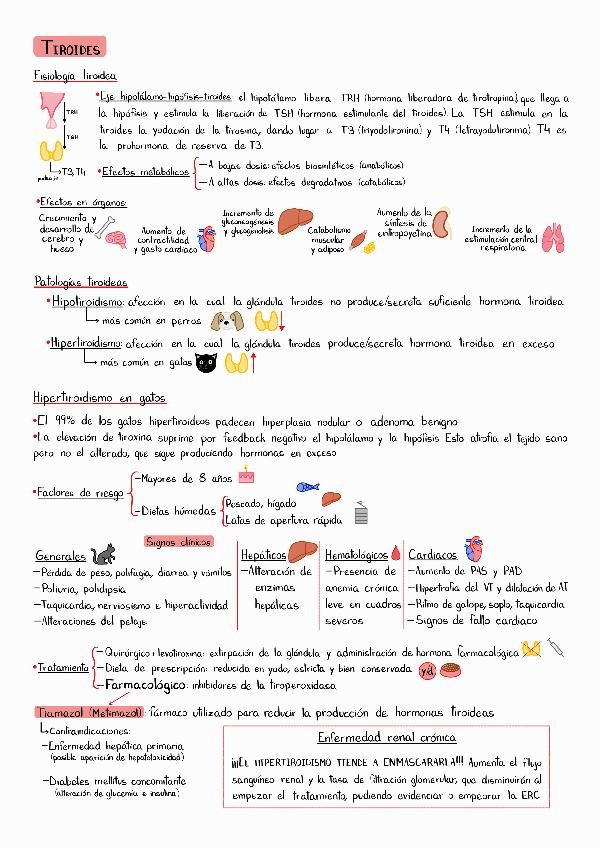 TIROIDES
Fisiología tiroidea
•Eje hipotálamo-hipófisis-tiroides: el hipotálamo libera TRH (hormona liberadora de tirotropina), que llega a
la hipófisis y estimula la liberación de TSH (hormona estimulante del tiroides). La TSH estimula en la
tiroides la yodación de la tirosina, dando lugar a T3 (triyodotironina) y T4 (tetrayodotironina). T4 es
la prohormona de reserva de T3.
TRH
TSH
T3, T4
•Efectos metabólicos
-A bajas dosis: efectos biosintéticos (anabólicos)
-A altas dosis: efectos degradativos (catabólicos)
•Efectos en órganos:
Crecimiento y
desarrollo de
cerebro y
hueso
Aumento de
contractilidad
y gasto cardíaco
Incremento de
gluconeogénesis
y glucogenolisis
Catabolismo
muscular
y adiposo
Aumento de la
síntesis de
eritropoyetina
Incremento de la
estimulación central
respiratoria
Patologías tiroideas
•Hipotiroidismo: afección en la cual la glándula tiroides no produce/secreta suficiente hormona tiroidea
más común en perros
•Hipertiroidismo: afección en la cual la glándula tiroides produce/secreta hormona tiroidea en exceso
más común en gatos
Hipertiroidismo en gatos
•El 99% de los gatos hipertiroideos padecen hiperplasia nodular o adenoma benigno
•La elevación de tiroxina suprime por feedback negativo el hipotálamo y la hipófisis. Esto atrofia el tejido sano
pero no el alterado, que sigue produciendo hormonas en exceso
•Factores de riesgo
-Mayores de 8 años
-Dietas húmedas
Pescado, hígado
Latas de apertura rápida
Signos clínicos
Generales
-Pérdida de peso, polifagia, diarrea y vómitos
-Poliuria, polidipsia
-Taquicardia, nerviosismo e hiperactividad
-Alteraciones del pelaje
Hepáticos
-Alteración de
enzimas
hepáticas
Hematológicos
-Presencia de
anemia crónica
leve en cuadros
severos
Cardiacos
-Aumento de PAS y PAD
-Hipertrofia del VI y dilatación de AI
-Ritmo de galope, soplo, taquicardia
-Signos de fallo cardiaco
•Tratamiento
-Quirúrgico+levotiroxina: extirpación de la glándula y administración de hormona farmacológica
-Dieta de prescripción: reducida en yodo, estricta y bien conservada
y/d
-Farmacológico: inhibidores de la tiroperoxidasa
Tiamazol (Metimazol): fármaco utilizado para reducir la producción de hormonas tiroideas
Contraindicaciones:
-Enfermedad hepática primaria
(posible aparición de hepatotoxicidad)
-Diabetes mellitus concomitante
(alteración de glucemia e insulina)
Enfermedad renal crónica
¡¡¡EL HIPERTIROIDISMO TIENDE A ENMASCARARLA!!! Aumenta el flujo
sanguíneo renal y la tasa de filtración glomerular, que disminuirán al
empezar el tratamiento, pudiendo evidenciar o empeorar la ERC